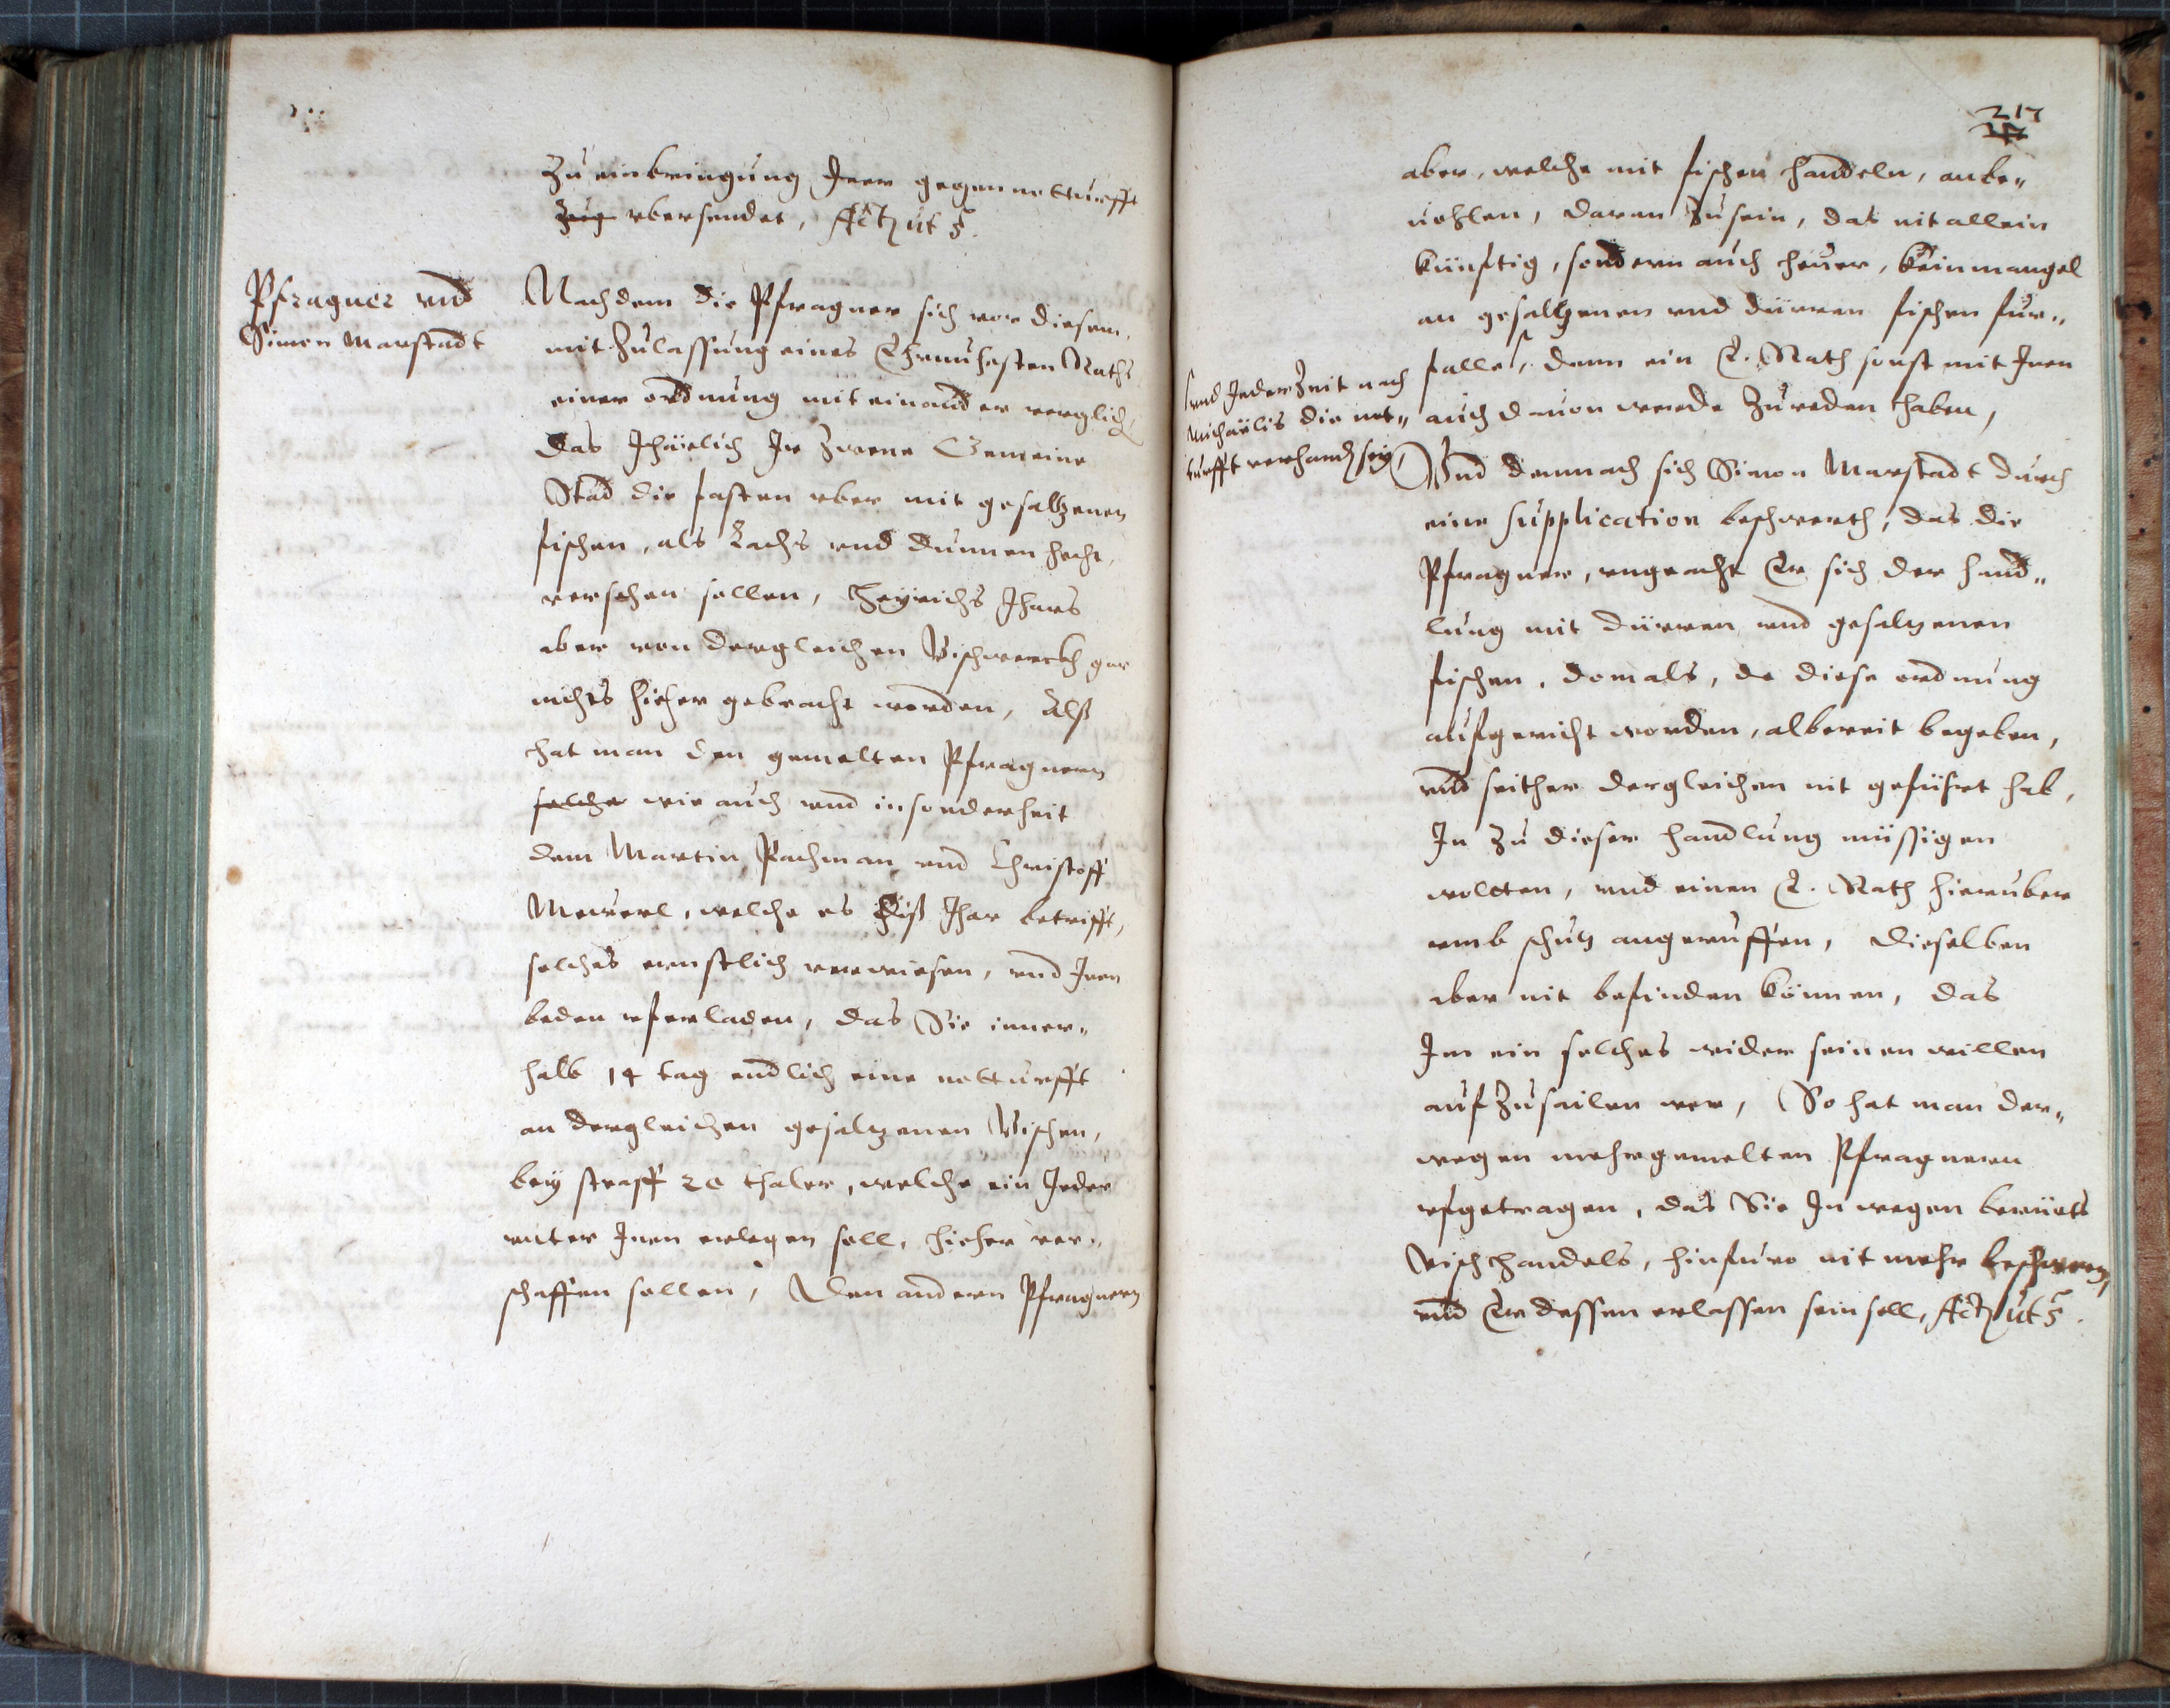 zu einbringung Irer gegennotturfft
zug vbersendet, Act[um] ut s.
Pfragner vnd
Simon Marstadt
Nachdem die Pfragner sich vor diesem,
mit Zulassung eines Ehrnuhesten Raths
einer ordnung mit einander verglich[en]
das Jhärlich Ir zwene Gemeine
Stad die fasten vber mit gesaltzenen
fischen, als Lachs vnd dunnen hecht,
versehen sollen, Heyrichs Jhars
aber von dergleichen Vischwerckh gar
nichts hieher gebracht worden, Alß
hat man den gemelten Pfragnern
solches wie auch vnd insonderheit
dem Martin Pachman vnd Christoff
Meuerl, welche es diß Jhar betrifft,
solches ernstlich verwiesen, vnd Inen
beden vferladen, das Sie inner„
halb 14 tag endlich eine notturfft
an dergleichen gesaltzenen Vischen,
bey straff 20 thaler, welche ein Jeder
vnter Inen erlegen soll, hieher ver„
schaffen sollen, Den andern Pfragnern
217
aber, welche mit fischen handeln, anbe„
uohlen, daran zu sein, das nit allein
künftig, sondern auch heuer, kein mangel
an gesaltzenen vnd dürren fischen für„
falle, dann ein E. Rath sonst mit Inen
auch dauon werde zu reden haben,
vnd Jederzeit nach
Michaëlis die not„
turfft verhanden sey
Vnd demnach sich Simon Marstadt durch
eine supplication beschwerth, das die
Pfragner, vngeacht Er sich der hand„
lung mit dürren vnd gesaltzenen
fischen, domals, da diese ordnung
aufgericht worden, albereit begeben,
vnd seither dergleichen nit geführt hab,
In zu dieser handlung müssigen
wolten, vnd einen E. Rath hieruber
vmb schutz angeruffen, dieselben
aber nit befinden können, das
Im ein solches wider seinen willen
aufzusailen wer, So hat man der„
wegen mehrgemelten Pfragnern
vfgetragen, das Sie In wegen berüets
Vischhandels, hinfuro nit mehr beschweren,
vnd Er dessen erlassen sein soll, Act[um] ut s.